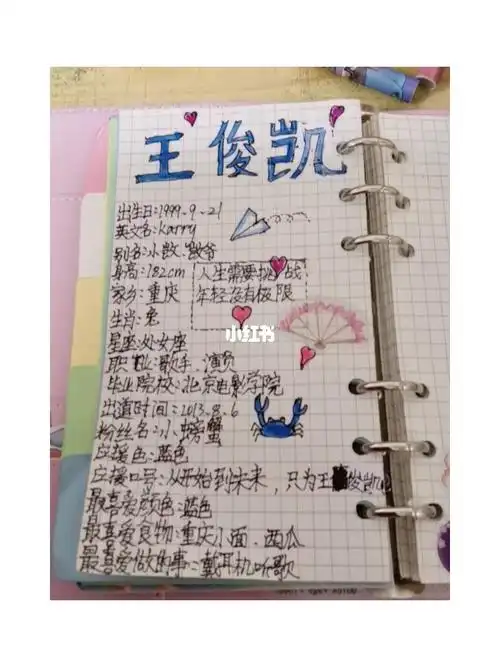 王俊凯
出生日:1999.9.21
英文名:karry
别名:小凯.凯爷
身高:182cm
人生需要挑战
年轻没有极限
家乡:重庆
生肖:兔
小红书
星座:处女座
职业:歌手.演员
毕业院校:北京电影学院
出道时间:2013.8.6
粉丝名:小螃蟹
应援色:蓝色
应援口号:从开始到未来,只为王俊凯
最喜爱颜色:蓝色
最喜爱食物:重庆小面.西瓜
最喜爱做的事:戴耳机听歌